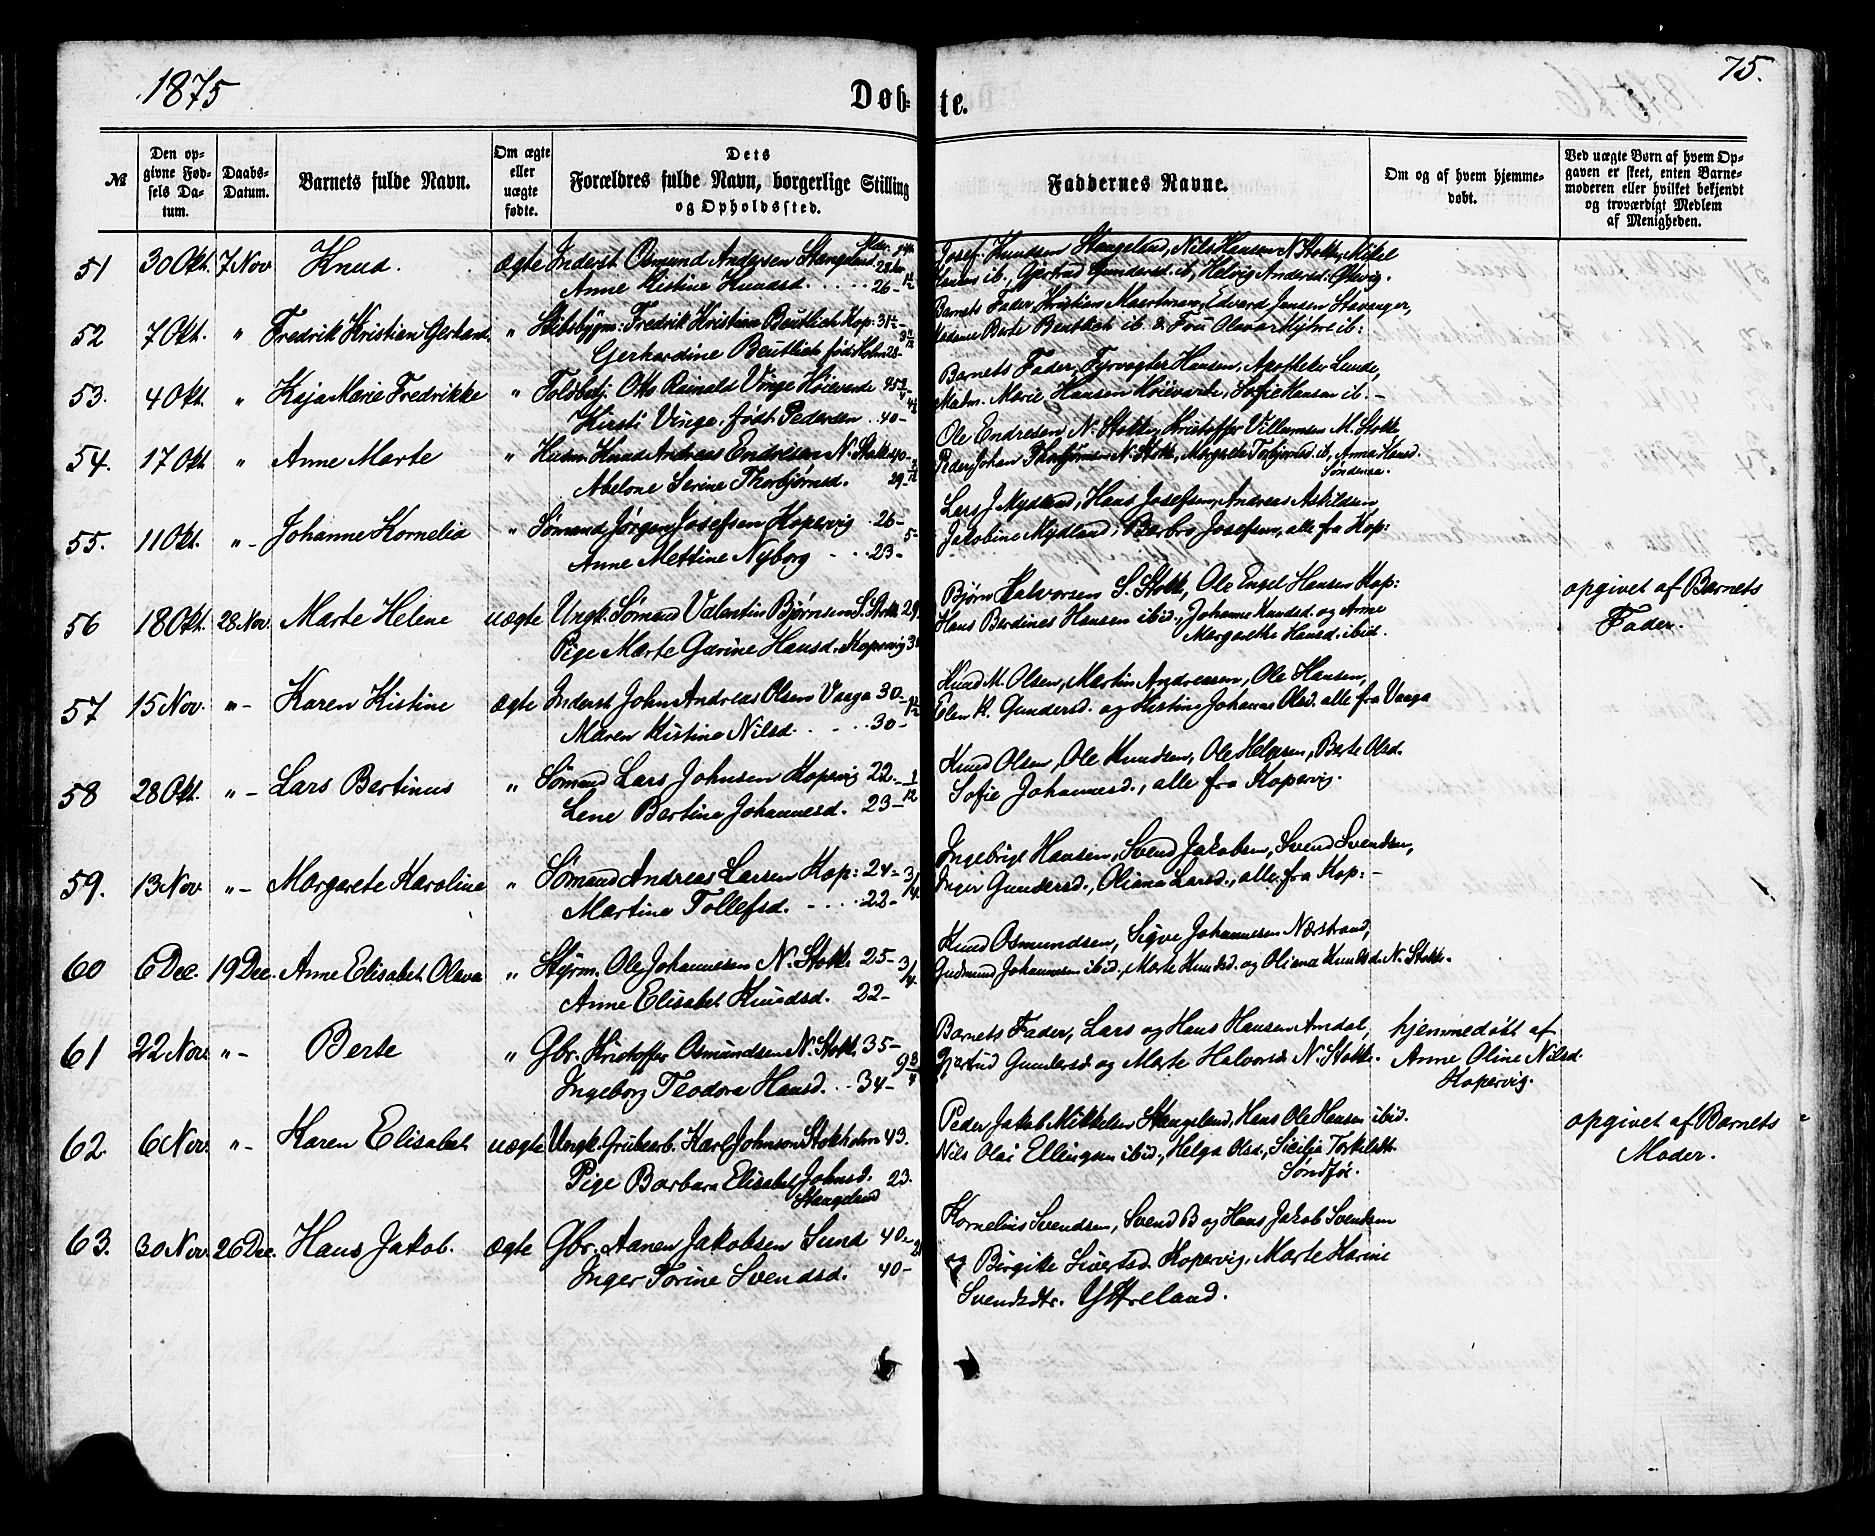 1875
Døbte.
75.
№
Den opgivne Fødsels Datum.
Daabs-Datum.
Barnets fulde Navn.
Om ægte eller uægte fødte.
Dets Forældres fulde Navn, borgerlige Stilling og Opholdssted.
Faddernes Navne.
Om og af hvem hjemmedøbt.
Ved uægte Børn af hvem Opgaven er skeet, enten Barnemoderen eller hvilket bekjendt og troværdigt Medlem af Menigheden.
51 30 Okt. 7 Nov Knud. ægte Inderst Osmund Andersen Stangeland 28
Anne Kistine Knudsd. . . . . 26 -
Josef Knudsen Stangeland, Nils Hansen N. Stokke, Mikel
Hansen ib., Gjertrud Gundersd. ib, Helvig Andersd.
52 7 Okt. " Fredrik Kristian Gerhard. " Skibsbygm: Fredrik Kristian Beutlich Kop: 31½ -
Gerhardine Beutlich født Holm 28 -
Barnets Fader, Kristian Maartman, Edvard Jensen Stavanger,
Madame Berte Beutlich ib. & Fru Olava Myhre ib:
53. 4 Okt. " Kaja Marie Fredrikke " Toldbetj. Otto Reinald Vinge Høievarde
Kirsti Vinge, født Pedersen . 40 -
Barnets Fader, Fyrvogter Hansen, Apotheker Lunde,
Madm. Marie Hansen Høievarde, Sofie Hansen ib. -
54. 17 Okt " Anne Marte " Husm. Knud Andreas Endresen N. Stokke 40 -
Abelone Serine Thorbjørnsd. 29 -
Ole Endresen N. Stokke, Kristoffer Villumsen M. Stokke
Peder Johan Thorbjørnsen N. Stokke, Margrete Torbjørnsd. ib, Anna Hansd.
Søndenaa.
55. 11 Okt. " - Johanne Kornelia " Sømand Jørgen Josefsen Kopervig . 26 -
Anne Mettine Nyborg - . . 23 - 5 -
Lars J. Mydland, Hans Josefsen, Andreas Askildsen
Jakobine Mydland, Barbro Josefsen, alle fra Kop:
56 18 Okt. 28 Nov. Marte Helene uægte Ungk. Sømand Valentin Bjørnsen S. Stokke 29
Pige Marte Garine Hansd. Kopervig
Bjørn Halvorsen S. Stokke, Ole Engel Hansen Kop:
Hans Berdines Hansen ibid., Johanne Knudsd. og Anne
Margrethe Hansd. ibid.
opgivet af Barnets
Fader.
57 15 Nov. " - Karen Kistine ægte Inderst John Andreas Olsen Vaaga 30 -
Maren Kistine Nilsd. . - . . 30 -
Knud M. Olsen, Martin Andreassen, Ole Hansen,
Elen K. Gundersd. og Kistine Johanne Olsd. alle fra Vaaga
58 28 Okt. " - Lars Bertinus " Sømand Lars Johnsen Kopervig 22 - 1/12
Lene Bertine Johannesd. 23 -
Knud Olsen, Ole Knudsen, Ole Helgesen, Berte Olsd.
Sofie Johannesd., alle fra Kopervig.
59. 13 Nov. " - Margrete Karoline " Sømand Andreas Larsen Kop: 24 - 3/4
Martine Tollefsd. - . . . 22 -
Ingebrigt Hansen, Svend Jakobsen, Svend Svendsen,
Inger Gundersd., Oliana Larsd., alle fra Kop: -
60 6 Dec. 19 Dec. Anne Elisabet Olava " Styrm. Ole Johannesen N. Stokke 25 - 3/4
Anne Elisabet Knudsd. 22 -
Knud Osmundsen, Sigve Johannesen Nærstrand,
Gudmund Johannesen ibid., Marte Knudsd. og Oliana Knudsd. N. Stokke.
61 22 Nov. " - Berte " Gbr. Kristoffer Osmundsen N. Stokke 35 -
Ingeborg Teodora Hansd. . . 34 - 9 3/4
Barnets Fader, Lars og Hans Hansen Amdal,
Gjertrud Gundersd. og Marte Halvorsd. N. Stokke.
hjemmedøbt af
Anne Oline Nilsd.
Kopervig.
62. 6 Nov. " - Karen Elisabet uægte Ungk. Grubearb. Karl Johnson Stokholm 43.
Pige Barbara Elisabet Johnsd. 23.
Stangeland
Peder Jakob Mikkelsen Stangeland, Hans Ole Hansen ibid.
Nils Olai Ellingsen ibid., Helga Olsd., Sicilia Torkildtr.
Søndfør.
opgivet af Barnets
Moder.
63. 30 Nov. 26 Dec. Hans Jakob. ægte Gbr. Aanen Jakobsen Sund 40 -
Inger Torine Svendsd. 40 -
Kornelius Svendsen, Svend B og Hans Jakob Svendsen
og Birgitte Sivertsd. Kopervig, Marte Karine
Svendsdtr. Ystreland.